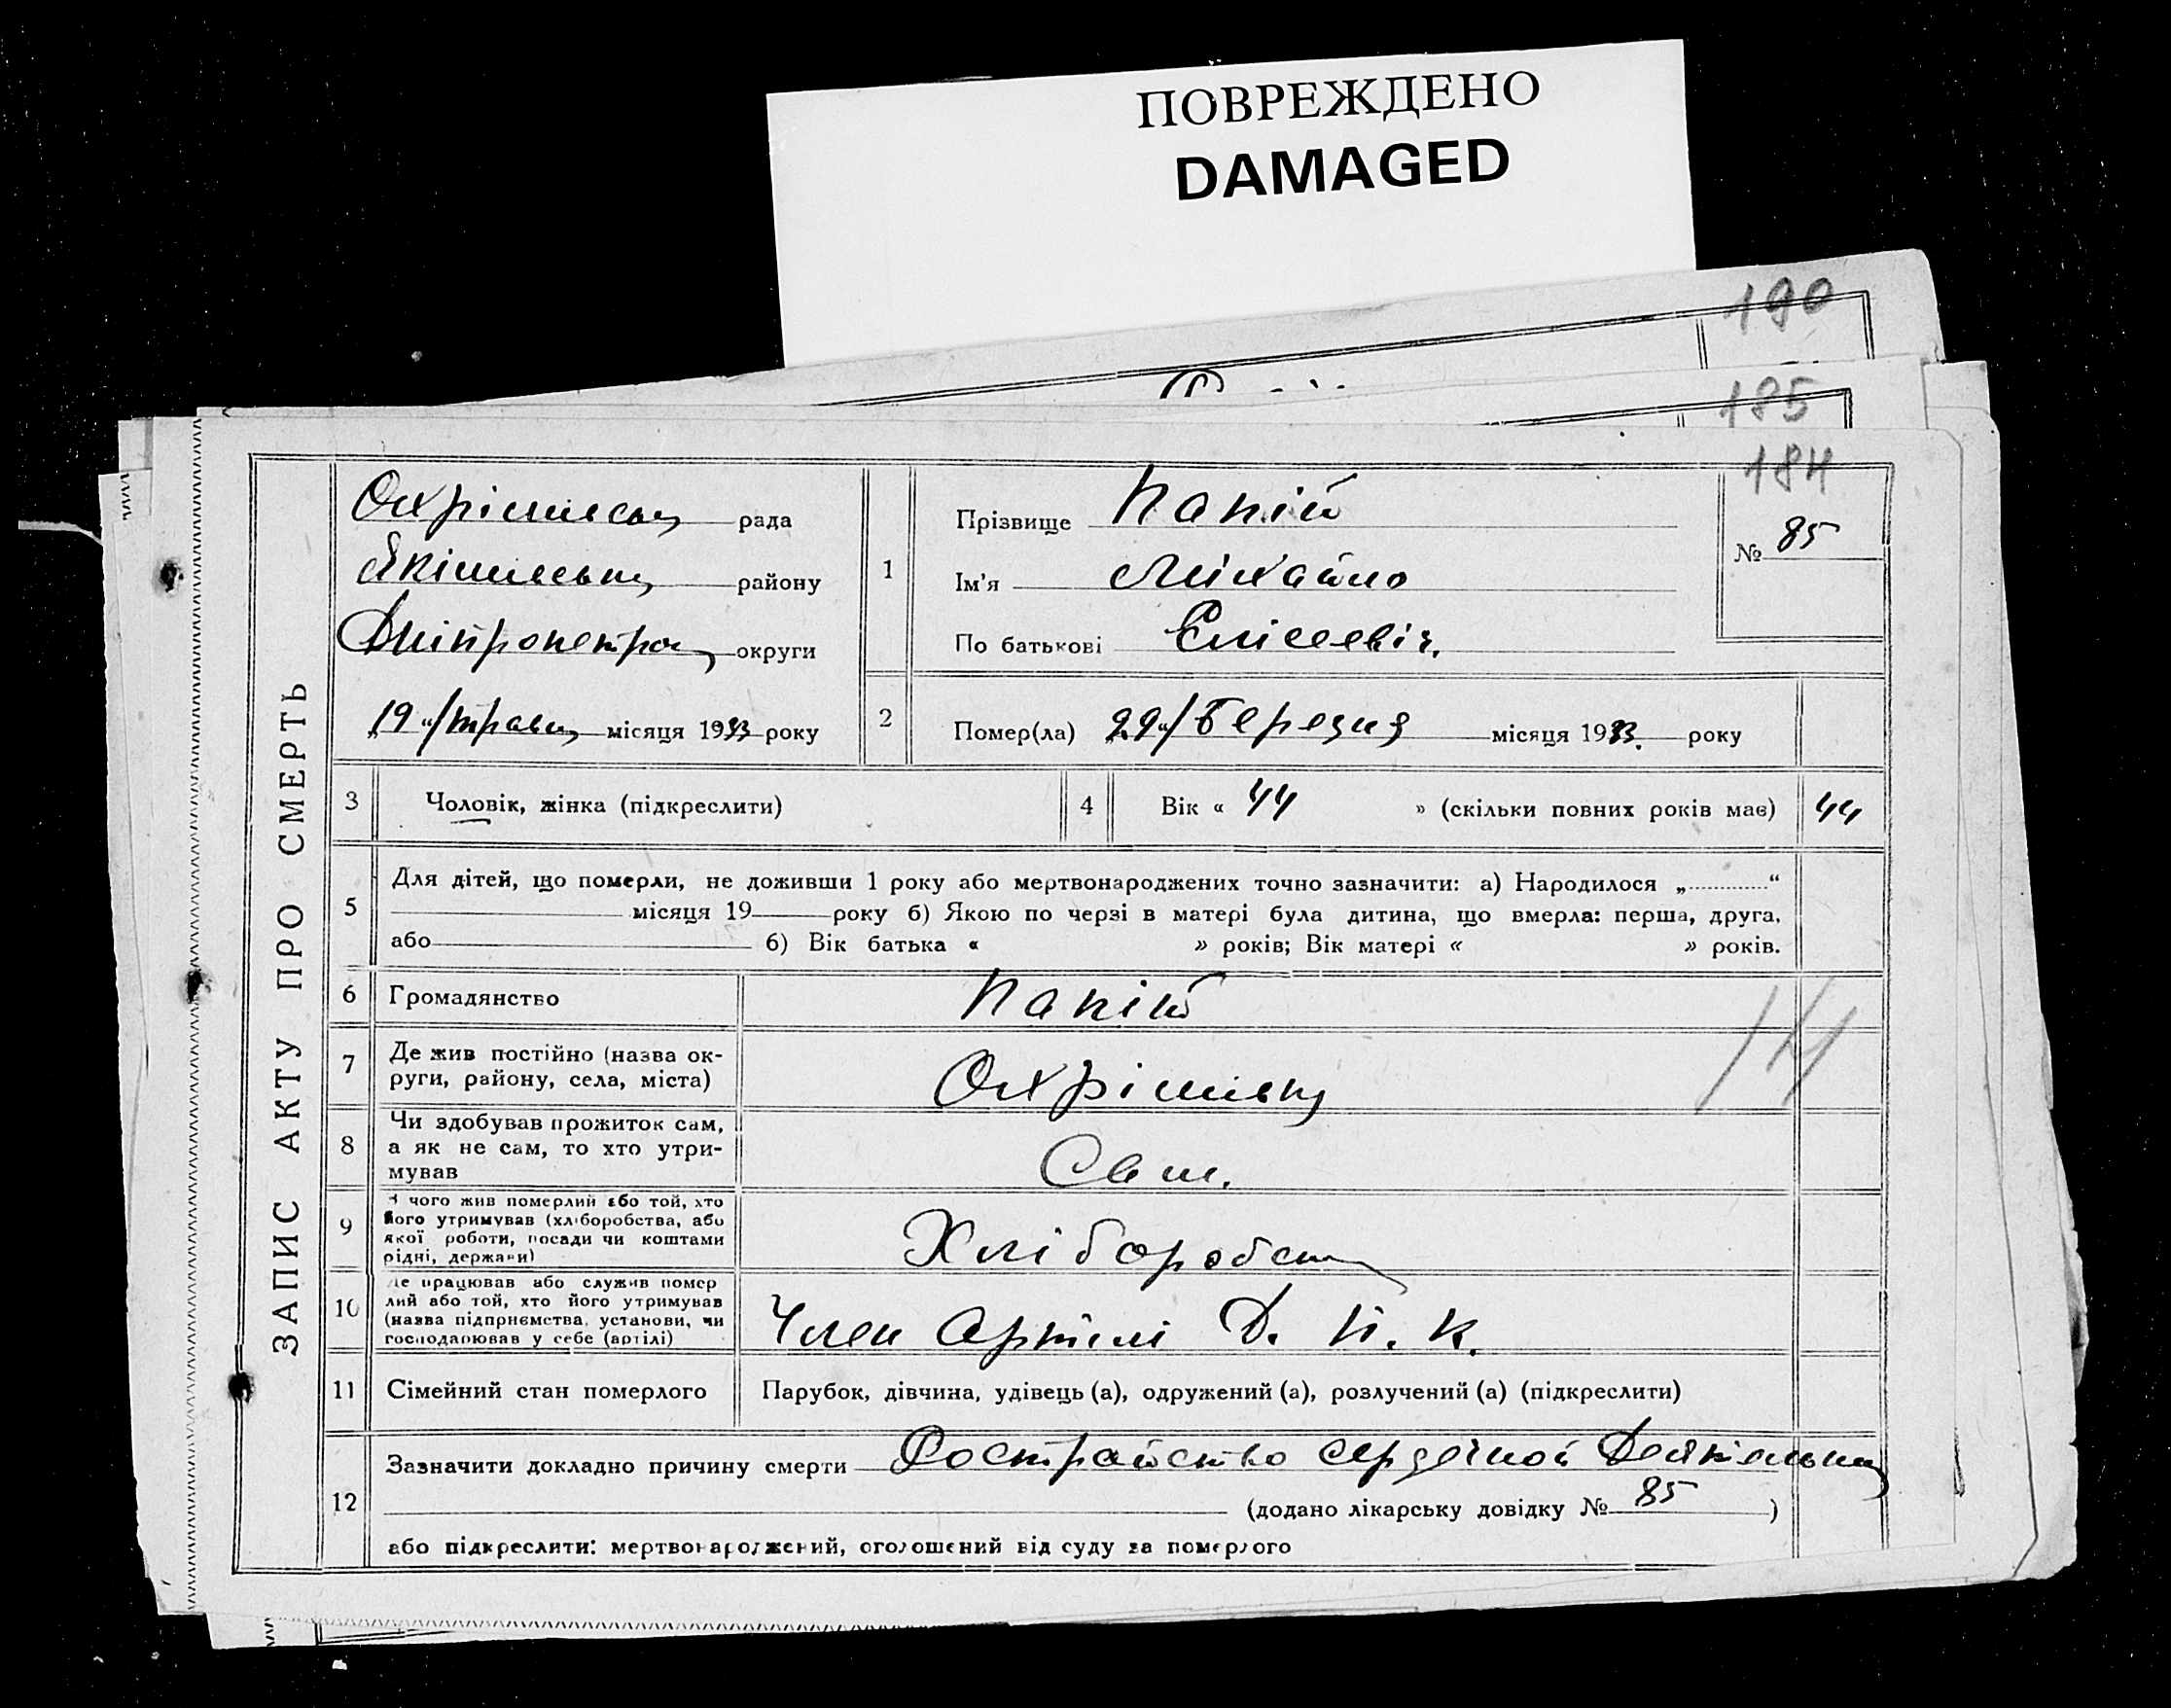 ПОВРЕЖДЕНО
DAMAGED
190
185
184
ЗАПИС АКТУ ПРО СМЕРТЬ
Охрімівсь рада
Якімівськ району
Дніпропетро округи
„19“/травн місяця 1933 року
1
Прізвище Папій
Ім'я Міхайло
По батькові Єлісеевіч.
№ 85
2
Помер(ла) „29“/Березня місяця 1933. року
3 Чоловік, жінка (підкреслити)
4 Вік « 44 » (скільки повних років має) 44
5 Для дітей, що померли, не доживши 1 року або мертвонароджених точно зазначити: а) Народилося „ “
місяця 19 року б) Якою по черзі в матері була дитина, що вмерла: перша, друга,
або б) Вік батька « » років; Вік матері « » років.
6 Громадянство Папій
7 Де жив постійно (назва ок-
руги, району, села, міста) Охрімівк
8 Чи здобував прожиток сам,
а як не сам, то хто утри-
мував Сам.
9 З чого жив померлий або той, хто
його утримував (хліборобства, або
якої роботи, посади чи коштами
рідні, держави) Хліборобст
10 Де працював або служив помер
лий або той, хто його утримував
(назва підприємства, установи, чи
господарював у себе (артілі) Член Артілі Д. П. К.
11 Сімейний стан померлого Парубок, дівчина, удівець (а), одружений (а), розлучений (а) (підкреслити)
12 Зазначити докладно причину смерти Рострайство сердечной Деятельн
(додано лікарську довідку № 85 )
або підкреслити: мертвонароджений, оголошений від суду за померлого